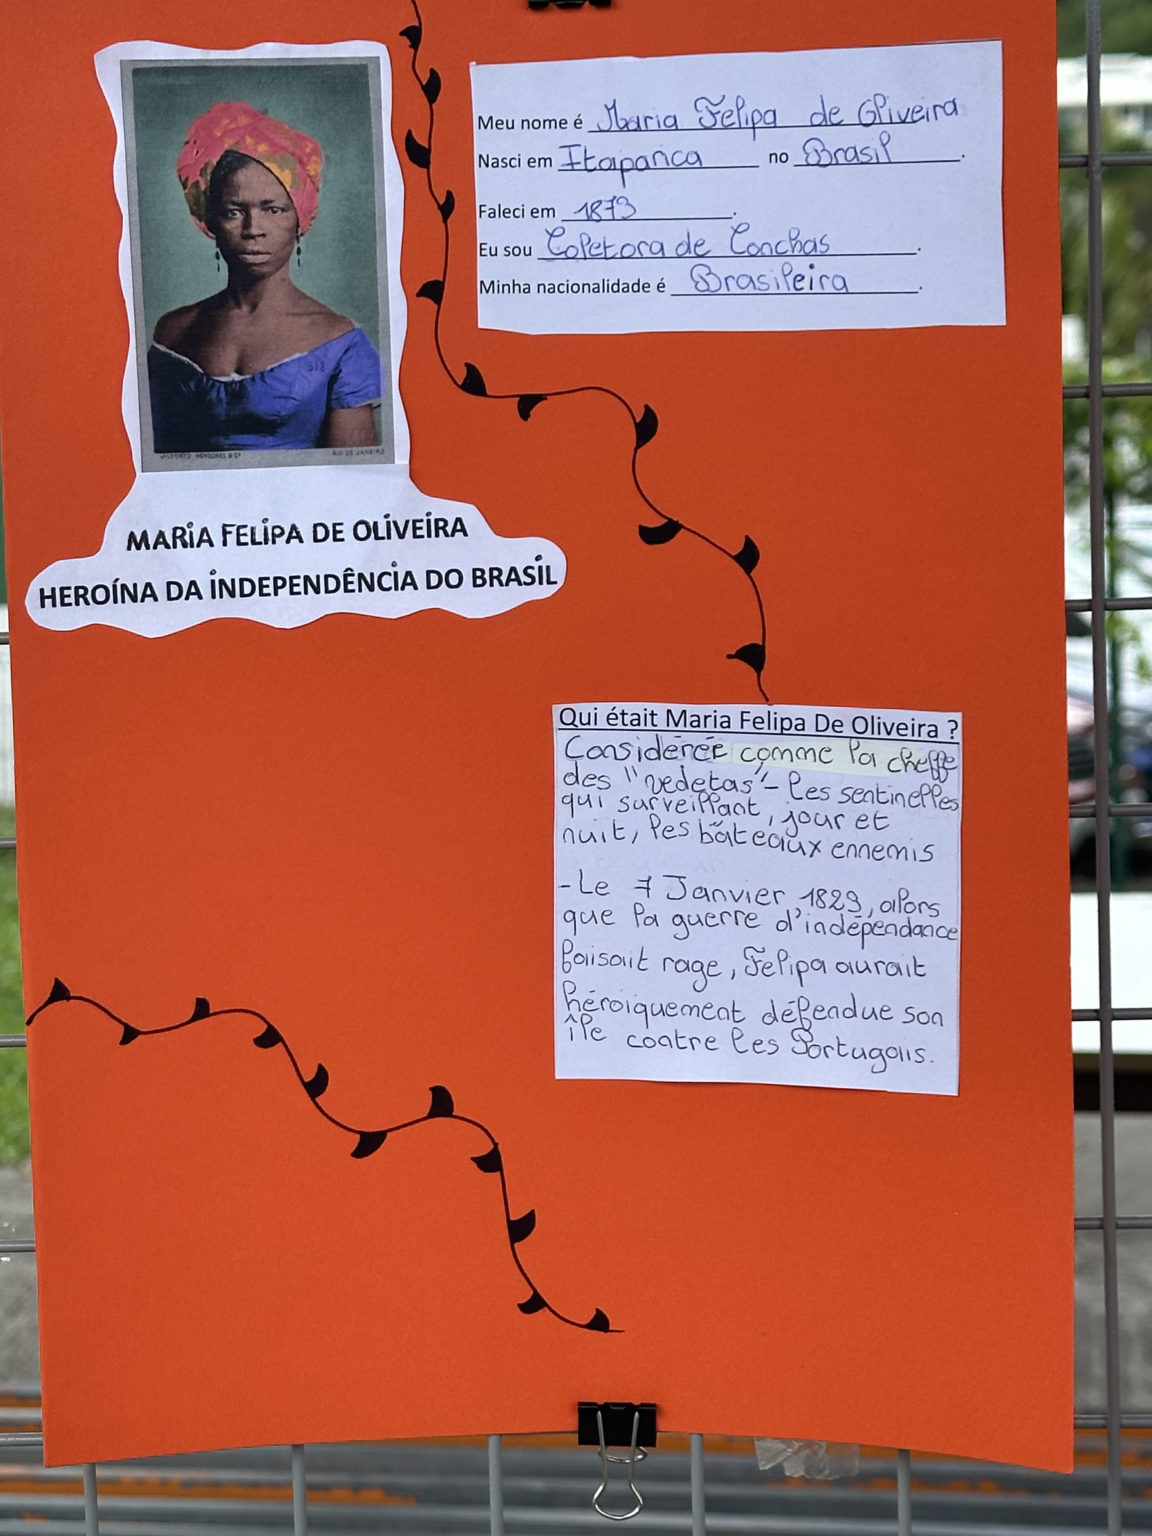 Meu nome é Maria Felipa de Oliveira
Nasci em Itaparica no Brasil.
Faleci em 1873.
Eu sou Coletora de Conchas.
Minha nacionalidade é Brasileira.
ALBERTO HENSCHEL & Cº RIO DE JANEIRO
MARIA FELIPA DE OLIVEIRA
HEROÍNA DA INDEPENDÊNCIA DO BRASIL
Qui était Maria Felipa De Oliveira ?
Considérée comme la cheffe
des "vedetas" - les sentinelles
qui surveillant, jour et
nuit, les bâteaux ennemis
- Le 7 Janvier 1823, alors
que la guerre d'indépendance
faisait rage, Felipa aurait
héroiquement défendue son
île contre les Portugais.